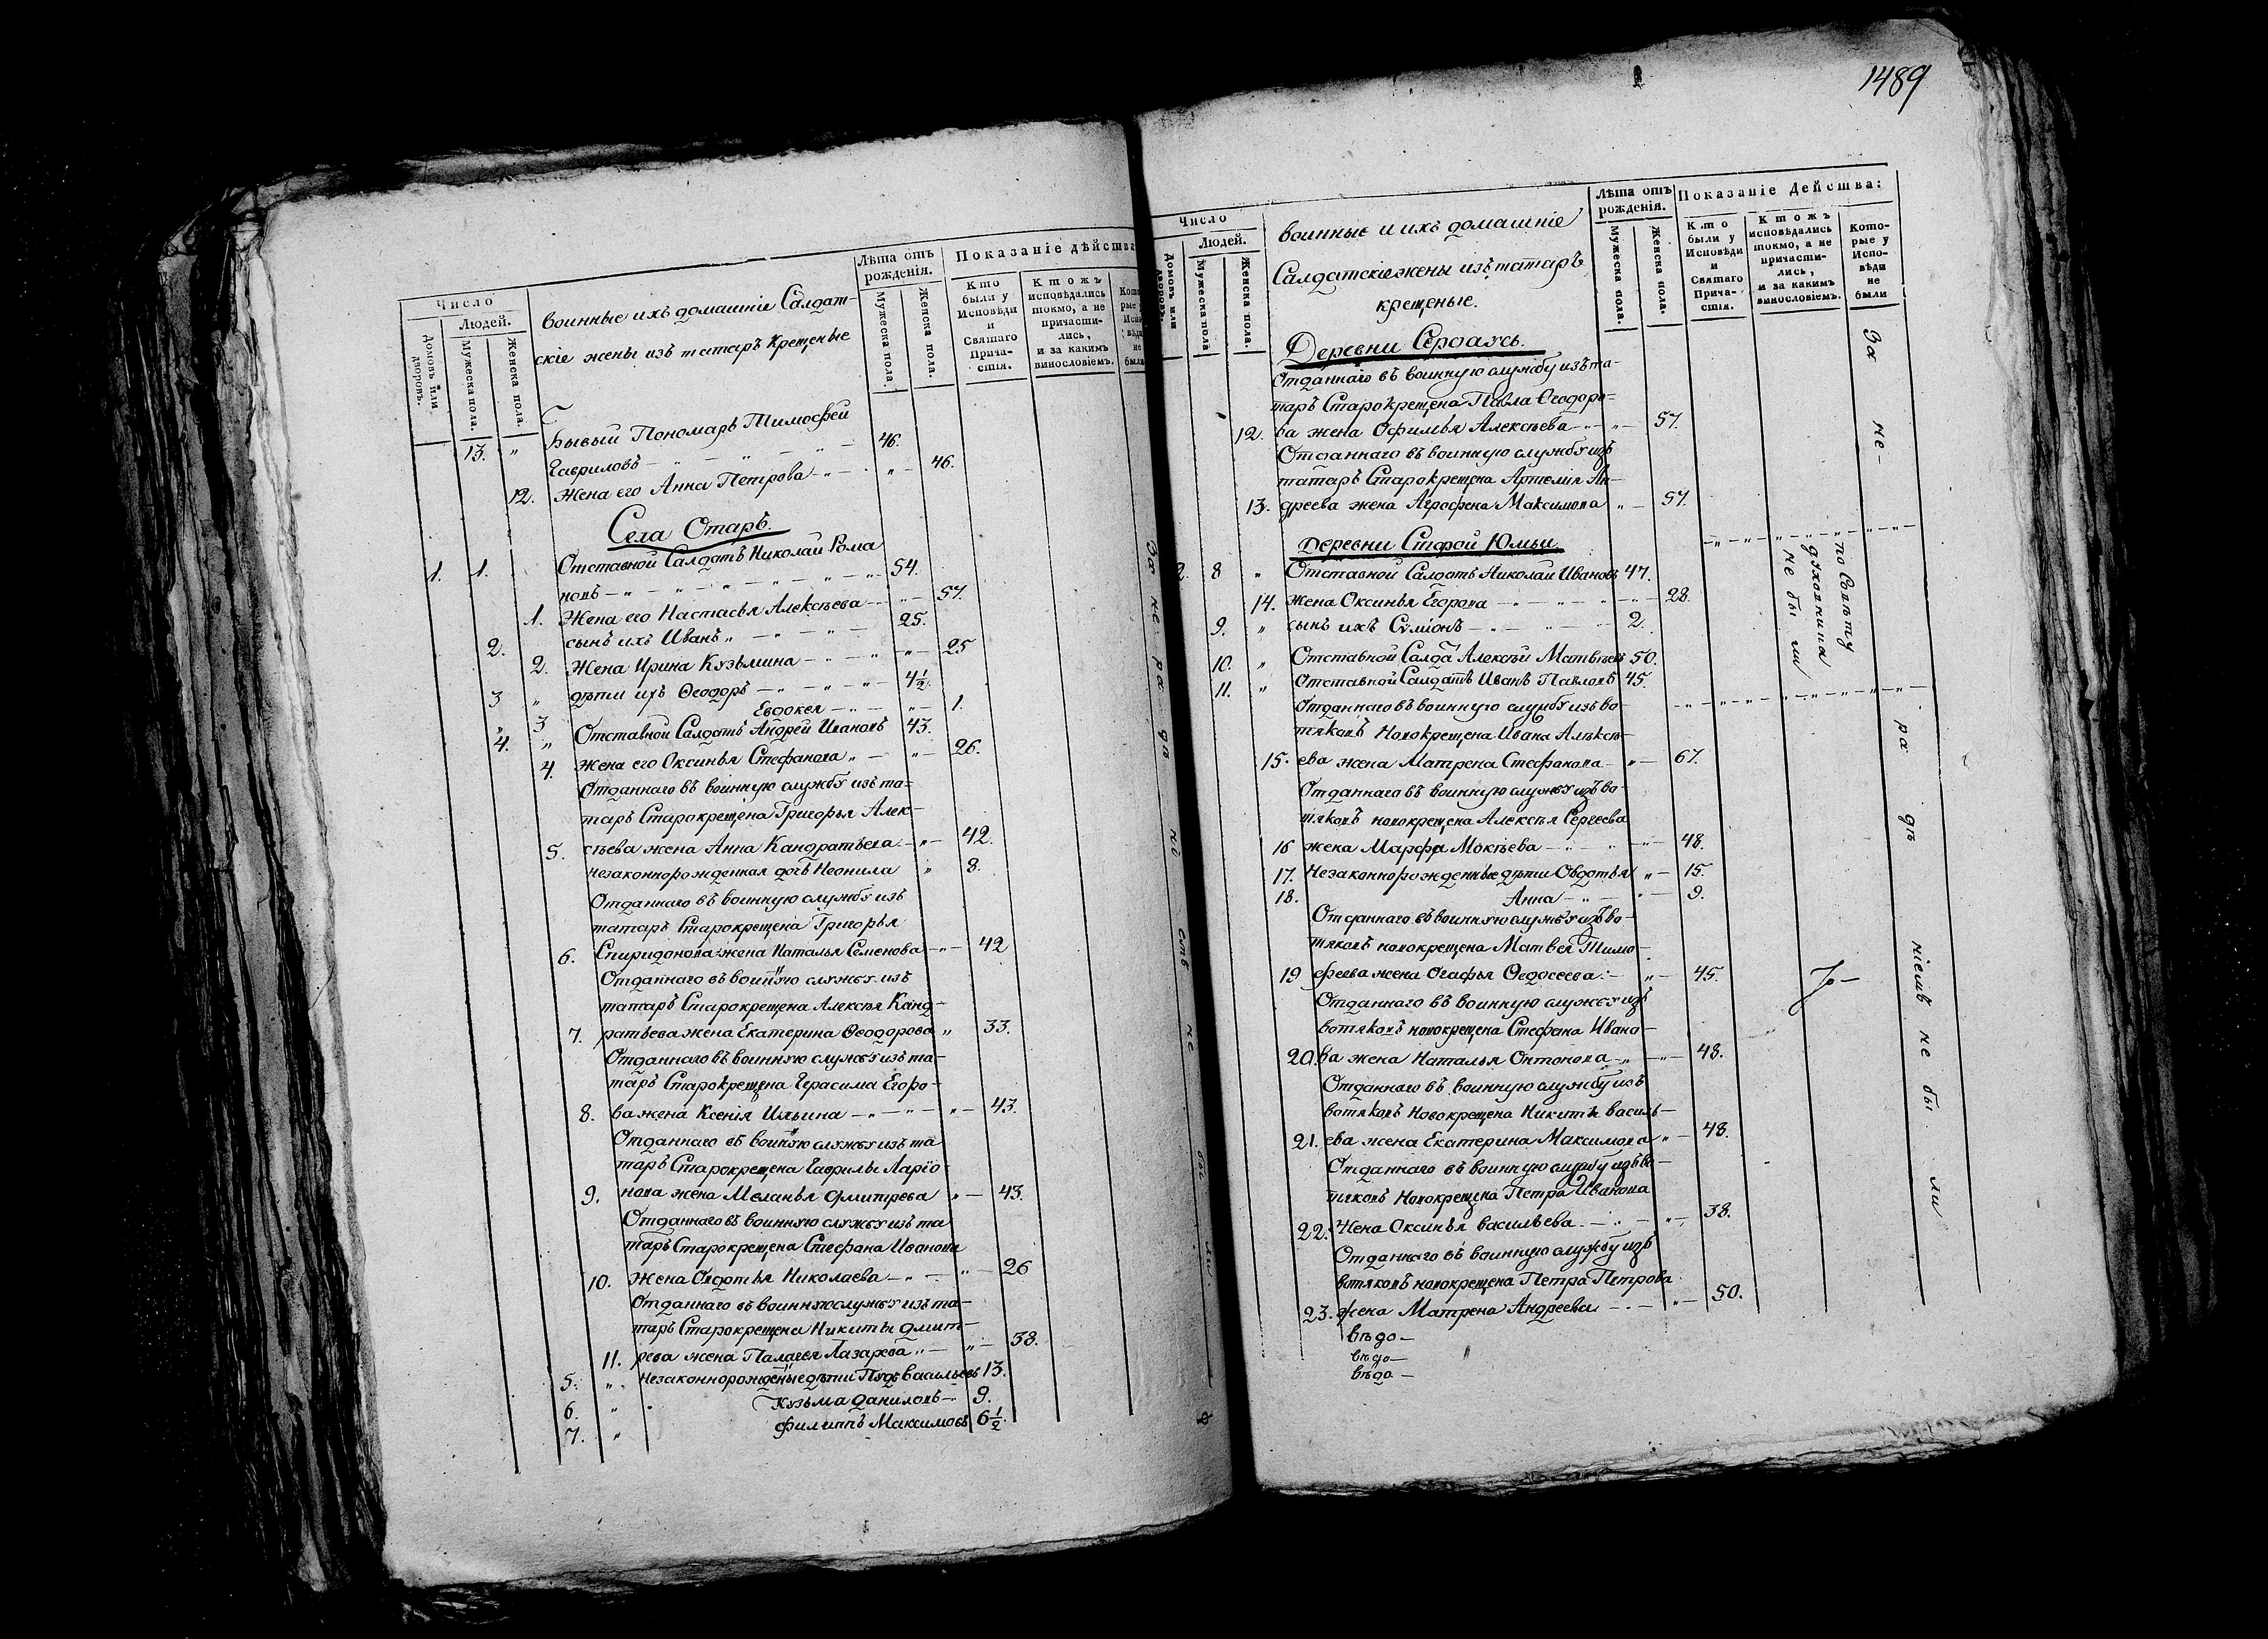 Число
Людей.
Домовъ или дворовъ.
Мужеска пола.
Женска пола.
воинные ихъ домашніе Салдат-
скіе жены изъ татаръ Крещеные
Лѣта отъ рожденія.
Мужеска пола.
Женска пола.
Показаніе дѣйства
Кто были у Исповѣди и Святаго Прича-стія.
Ктожъ исповѣдались токмо, а не причасти-лись, и за какимъ винословіемъ.
13. " Бывый Пономарь Тимофей
Гавриловъ — " — " — " — 46.
12. Жена его Анна Петрова — " — " — 46.
Села Отаръ.
1. 1. Отставной Салдатъ Николай Рома
новъ — " — " — " — " — " — 54.
1. Жена его Настасья Алексѣева — " — 57.
2. сынъ ихъ Иванъ " — " — " — 25.
2. Жена Ирина Кузьмина — " — " — " — 25
3 " дѣти ихъ Ѳеодоръ — " — " — " — 4½.
" 3 Евдокея — " — " — 1.
4. " Отставной Салдатъ Андрей Ивановъ 43.
4. Жена его Оксинья Стефанова " — " — 26.
Отданнаго въ воинную службу изъ та-
таръ Старокрещена Григорья Алек-
5. сѣева жена Анна Кандратьева — " — 42.
незаконнорожденная дочь Неонила " 8.
Отданнаго въ воинную службу изъ
татаръ Старокрещена Григорья
6. Спиридонова жена Наталья Семенова — " — 42
Отданнаго въ воинную службу изъ
татаръ Старокрещена Алексѣя Канд-
7. ратьева жена Екатерина Ѳеодорова " 33.
Отданнаго въ воинную службу изъ та-
таръ Старокрещена Герасима Егоро-
8. ва жена Ксенія Ильина — " — " — " — 43.
Отданнаго въ воинную службу изъ та
таръ Старокрещена Гаврилы Ларіо-
9. нова жена Меланья Дмитрева " — 43.
Отданнаго въ воинную службу изъ та
таръ Старокрещена Стефана Иванова
10. Жена Овдотья Николаева — " — " — 26
Отданнаго въ воинную службу изъ та-
таръ Старокрещена Никиты Дмит-
11. рева жена Палагея Лазарева " — " — 38.
5. " Незаконнорожденые дѣти Пудъ Васильевъ 13.
6. " Кузьма Даниловъ — 9.
7. " Филиппъ Максимовъ 6½.
За не ра дѣ ні емъ не бы ли
1489
Число
Людей.
Домовъ или дворовъ.
Мужеска пола
Женска пола.
воинные и ихъ домашніе
Салдатскіе жены изъ татаръ
крещеные.
Лѣта отъ рожденія.
Мужеска пола.
Женска пола.
Показаніе Действа:
Кто были у Исповѣди и Святаго Прича-стія.
Ктожъ исповѣдались токмо, а не причасти-лись, и за какимъ винословіемъ.
Кото-рые у Испо-вѣди не были
Деревни Сердаусь.
Отданнаго въ воинную службу изъ та-
таръ Старокрещена Павла Ѳеодоро-
12. ва жена Офимья Алексѣева — " — " — 57.
Отданнаго въ воинную службу изъ
татаръ Старокрещена Артемія Ан-
13. дреева жена Агрофена Максимова " — 57.
Деревни Старой Юмьи
2. 8 " Отставной Салдатъ Николай Ивановъ 47.
14. жена Оксинья Егорова — " — " — " — 28.
9. " сынъ ихъ Сѵміонъ — " — " — 2.
10. " Отставной Салда Алексѣй Матвѣевъ 50.
11. " Отставной Салдатъ Иванъ Павловъ 45.
Отданнаго въ воинную службу изъ во-
тяковъ Новокрещена Ивана Алѣксѣ-
15. ева жена Матрена Стефанова — " — 67.
Отданнаго въ воинную службу изъ во-
тяковъ новокрещена Алексѣя Сергеева
16 жена Марфа Мокѣева — " — " — 48.
17. Незаконнорожденные дѣти Овдотья " — 15.
18. Анна — " — " — 9.
Отданнаго въ воинную службу изъ во-
тяковъ новокрещена Матвея Тимо-
19 феева жена Огафья Ѳедосеева. — " — 45.
Отданнаго въ воинную службу изъ
вотяковъ новокрещена Стефана Ивано-
20. ва жена Наталья Онтонова — " — " — 48.
Отданнаго въ воинную службу изъ
вотяковъ Новокрещена Никиты Василь-
21. ева жена Екатерина Максимова " — 48.
Отданнаго въ воинную службу изъ во-
тяковъ Новокрещена Петра Иванова
22. Жена Оксинья Васильева. — " — " — 38.
Отданнаго въ воинную службу изъ
вотяковъ новокрещена Петра Петрова
23. жена Матрена Андреева — " — " — 50.
вѣдо —
вѣдо —
вѣдо —
по Совѣту
духовника
не бы ли
За не-
ра дѣ ніемъ не бы ли